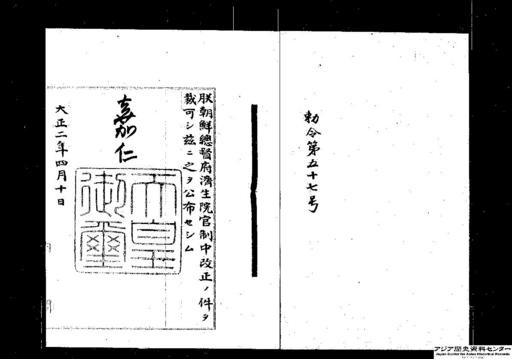 勅令第五十七号
朕朝鮮總督府濟生院官制中改正ノ件ヲ
裁可シ茲ニ之ヲ公布セシム
嘉仁
天皇御璽
大正二年四月十日
アジア歴史資料センター
Japan Center for Asian Historical Records